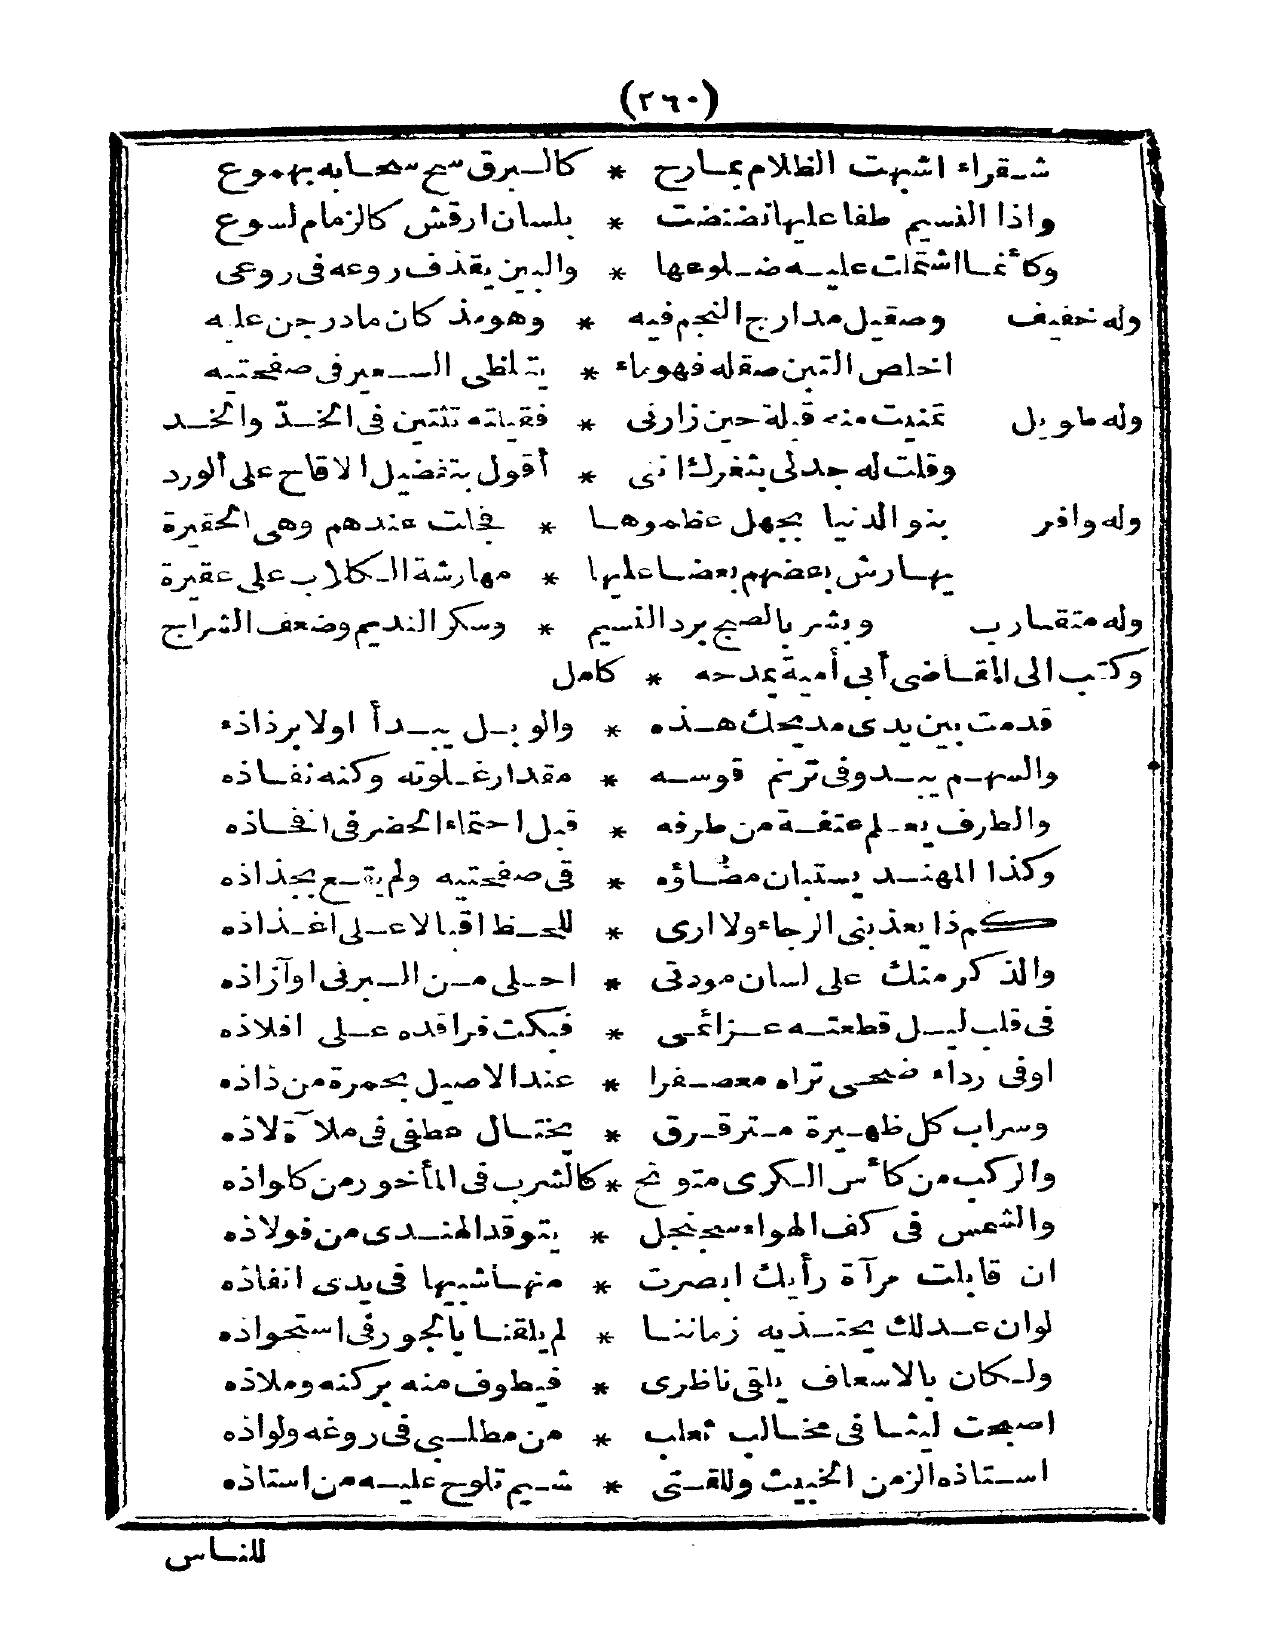 (٢٦٠)
شقراء اشبهت الظلام بمارج * كالبرق سح سحابه بهموع
واذا النسيم طفا عليها نضنضت * بلسان ارقش كالزمام لسوع
وكأنما اشتملت عليه ضلوعها * والبين يقذف روعه فى روعى
وله خفيف وصقيل مدارج النجم فيه * وهو مذ كان مادرجن عليه
اخلص القين صقله فهو ماء * يتلظى السعير فى صفحتيه
وله طويل تمنيت منه قبلة حين زارنى * فقبلته ثنتين فى الخدّ والخد
وقلت له جدلى بثغرك انى * أقول بتفضيل الاقاح على ألورد
وله وافر بنو الدنيا بجهل عظموها * فجلت عندهم وهى الحقيرة
يهارش بعضهم بعضا عليها * مهارشة الكلاب على عقيرة
وله متقارب وبشر بالصبح برد النسيم * وسكر النديم وضعف السراج
وكتب الى القاضى أبى أمية يمدحه * كامل
قدمت بين يدى مديحك هذه * والوبل يبدأ اولا برذاذه
والسهم يبدو فى ترنم قوسه * مقدار غلوته وكنه نفاذه
والطرف يعلم عتقه من طرفه * قبل احتماء الحضر فى افخاذه
وكذا المهند يستبان مضاؤه * فى صفحتيه ولم يقع بجذاذه
كم ذا يعذبنى الرجاء ولا ارى * للحظ اقبالا على اغذاذه
والذكر منك على لسان مودتى * احلى من البر فى اوآزاذه
فى قلب ليل قطعته عزائمى * فبكت فراقده على افلاذه
اوفى رداء ضحى تراه معصفرا * عند الاصيل بحمرة من ذاذه
وسراب كل ظهيرة مترقرق * يختال عطفى فى ملآة لاذه
والركب من كأس الكرى مترنح * كالشرب فى المأخور من كلواذه
والشمس فى كف الهواء سجنجل * يتوقد الهندى من فولاذه
ان قابلت مرآة رأيك ابصرت * منها شبيها فى يدى انفاذه
لو ان عدلك يحتذيه زماننا * لم يلقنا بالجور فى استحواذه
ولكان بالاسعاف يلقى ناظرى * فيطوف منه بركنه وملاذه
اصبحت ليثا فى مخالب ثعلب * من مطلبى فى روغه ولواذه
استاذه الزمن الخبيث وللفتى * شيم تلوح عليه من استاذه
للناس